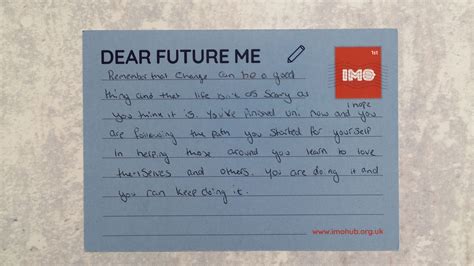 DEAR FUTURE ME
1st
IMO
Remember that change can be a good
thing and that life isn't as scary as
you think it is. You've finished uni now and you
i hope
are following the path you started for yourself
In helping those around you learn to love
themselves and others. You are doing it and
you can keep doing it.
www.imohub.org.uk